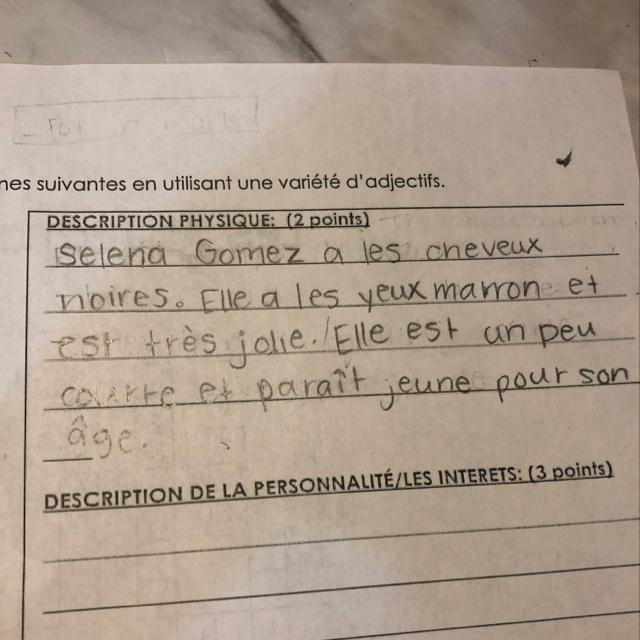 nes suivantes en utilisant une variété d'adjectifs.
DESCRIPTION PHYSIQUE: (2 points)
Selena Gomez a les cheveux
noires. Elle a les yeux marron et
est très jolie. Elle est un peu
courte et paraît jeune pour son
âge.
DESCRIPTION DE LA PERSONNALITÉ/LES INTERETS: (3 points)